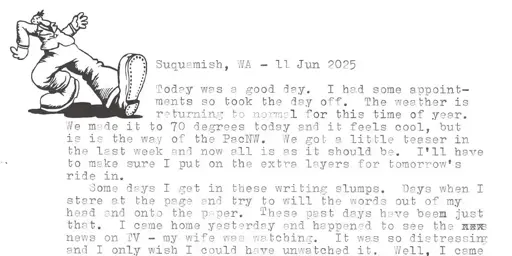 Suquamish, WA - 11 Jun 2025
Today was a good day. I had some appoint-
ments so took the day off. The weather is
returning to normal for this time of year.
We made it to 70 degrees today and it feels cool, but
is is the way of the PacNW. We got a little teaser in
the last week and now all is as it should be. I'll have
to make sure I put on the extra layers for tomorrow's
ride in.
Some days I get in these writing slumps. Days when I
stare at the page and try to will the words out of my
head and onto the paper. These past days have been just
that. I came home yesterday and happened to see the xxx
news on TV - my wife was watching. It was so distressing
and I only wish I could have unwatched it. Well, I came